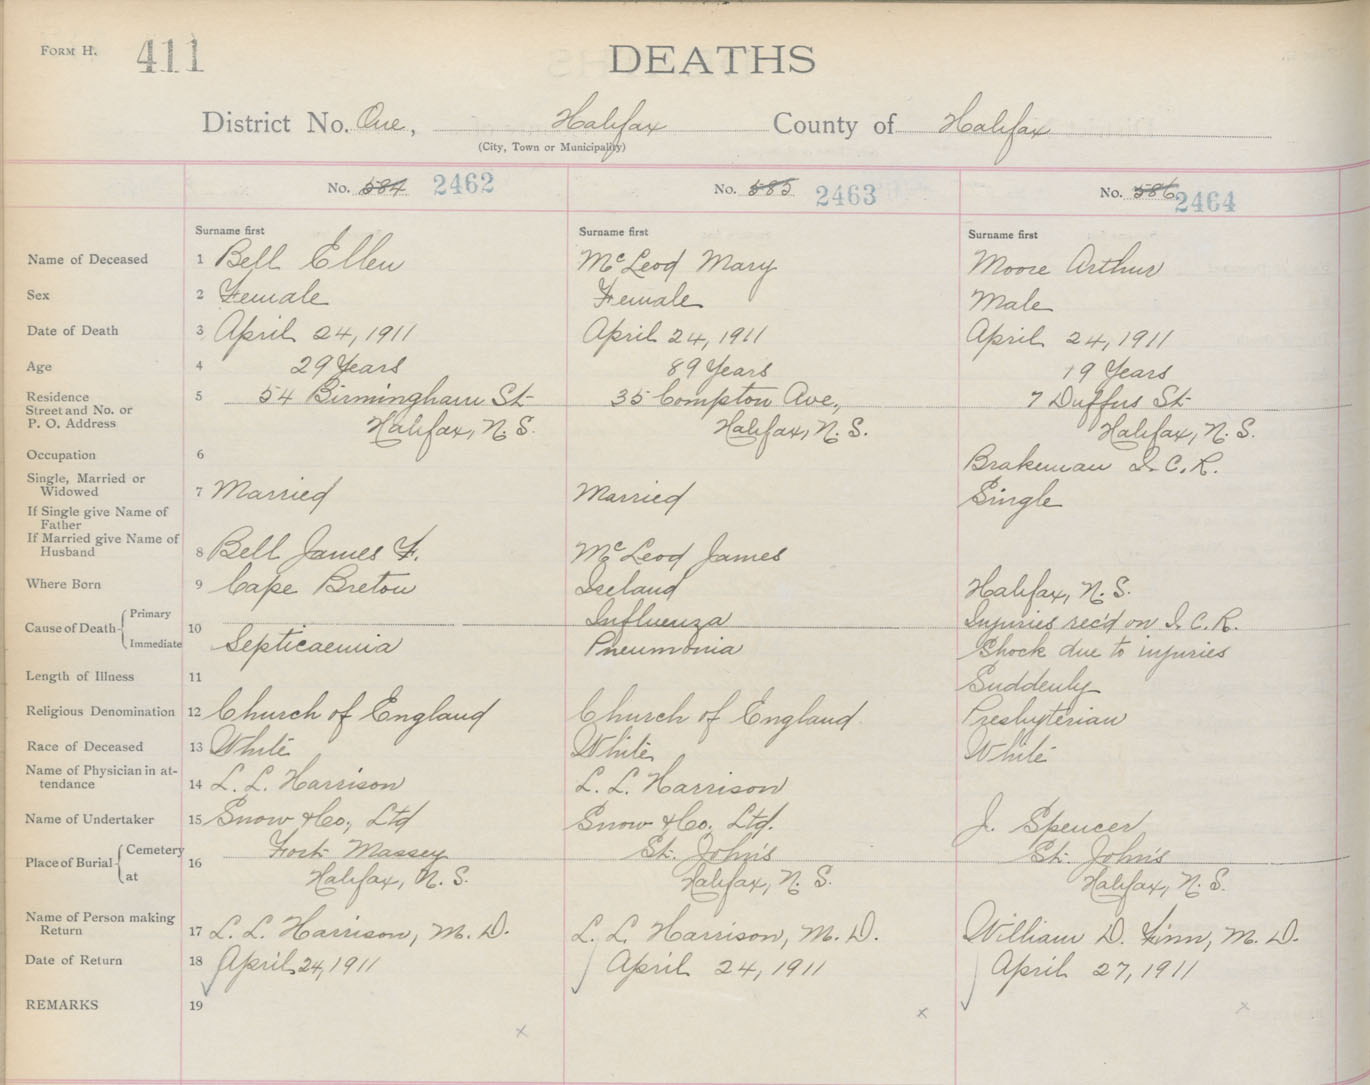 FORM H. 411 DEATHS
District No. One, Halifax County of Halifax
(City, Town or Municipality)
No. 584 2462 No. 585 2463 No. 586 2464
Surname first Surname first Surname first
Name of Deceased 1 Bell Ellen McLeod Mary Moore Arthur
Sex 2 Female Female Male
Date of Death 3 April 24, 1911 April 24, 1911 April 24, 1911
Age 4 29 Years 89 Years 19 Years
Residence 5 54 Birmingham St 35 Compton Ave., 7 Duffus St
Street and No. or
P. O. Address Halifax, N. S. Halifax, N. S. Halifax, N. S.
Occupation 6 Brakeman I. C. R.
Single, Married or
Widowed 7 Married Married Single
If Single give Name of
Father
If Married give Name of
Husband 8 Bell James F. McLeod James
Where Born 9 Cape Breton Ireland Halifax, N. S.
Cause of Death 10 Primary Influenza Injuries rec'd on I. C. R.
Immediate Septicaemia Pneumonia Shock due to injuries
Length of Illness 11 Suddenly
Religious Denomination 12 Church of England Church of England Presbyterian
Race of Deceased 13 White White White
Name of Physician in at-
tendance 14 L. L. Harrison L. L. Harrison
Name of Undertaker 15 Snow & Co., Ltd Snow & Co. Ltd. J. Spencer
Place of Burial 16 Cemetery Fort Massey St. John's St. John's
at Halifax, N. S. Halifax, N. S. Halifax, N. S.
Name of Person making
Return 17 L. L. Harrison, M. D. L. L. Harrison, M. D. William D. Finn, M. D.
Date of Return 18 April 24, 1911 April 24, 1911 April 27, 1911
REMARKS 19